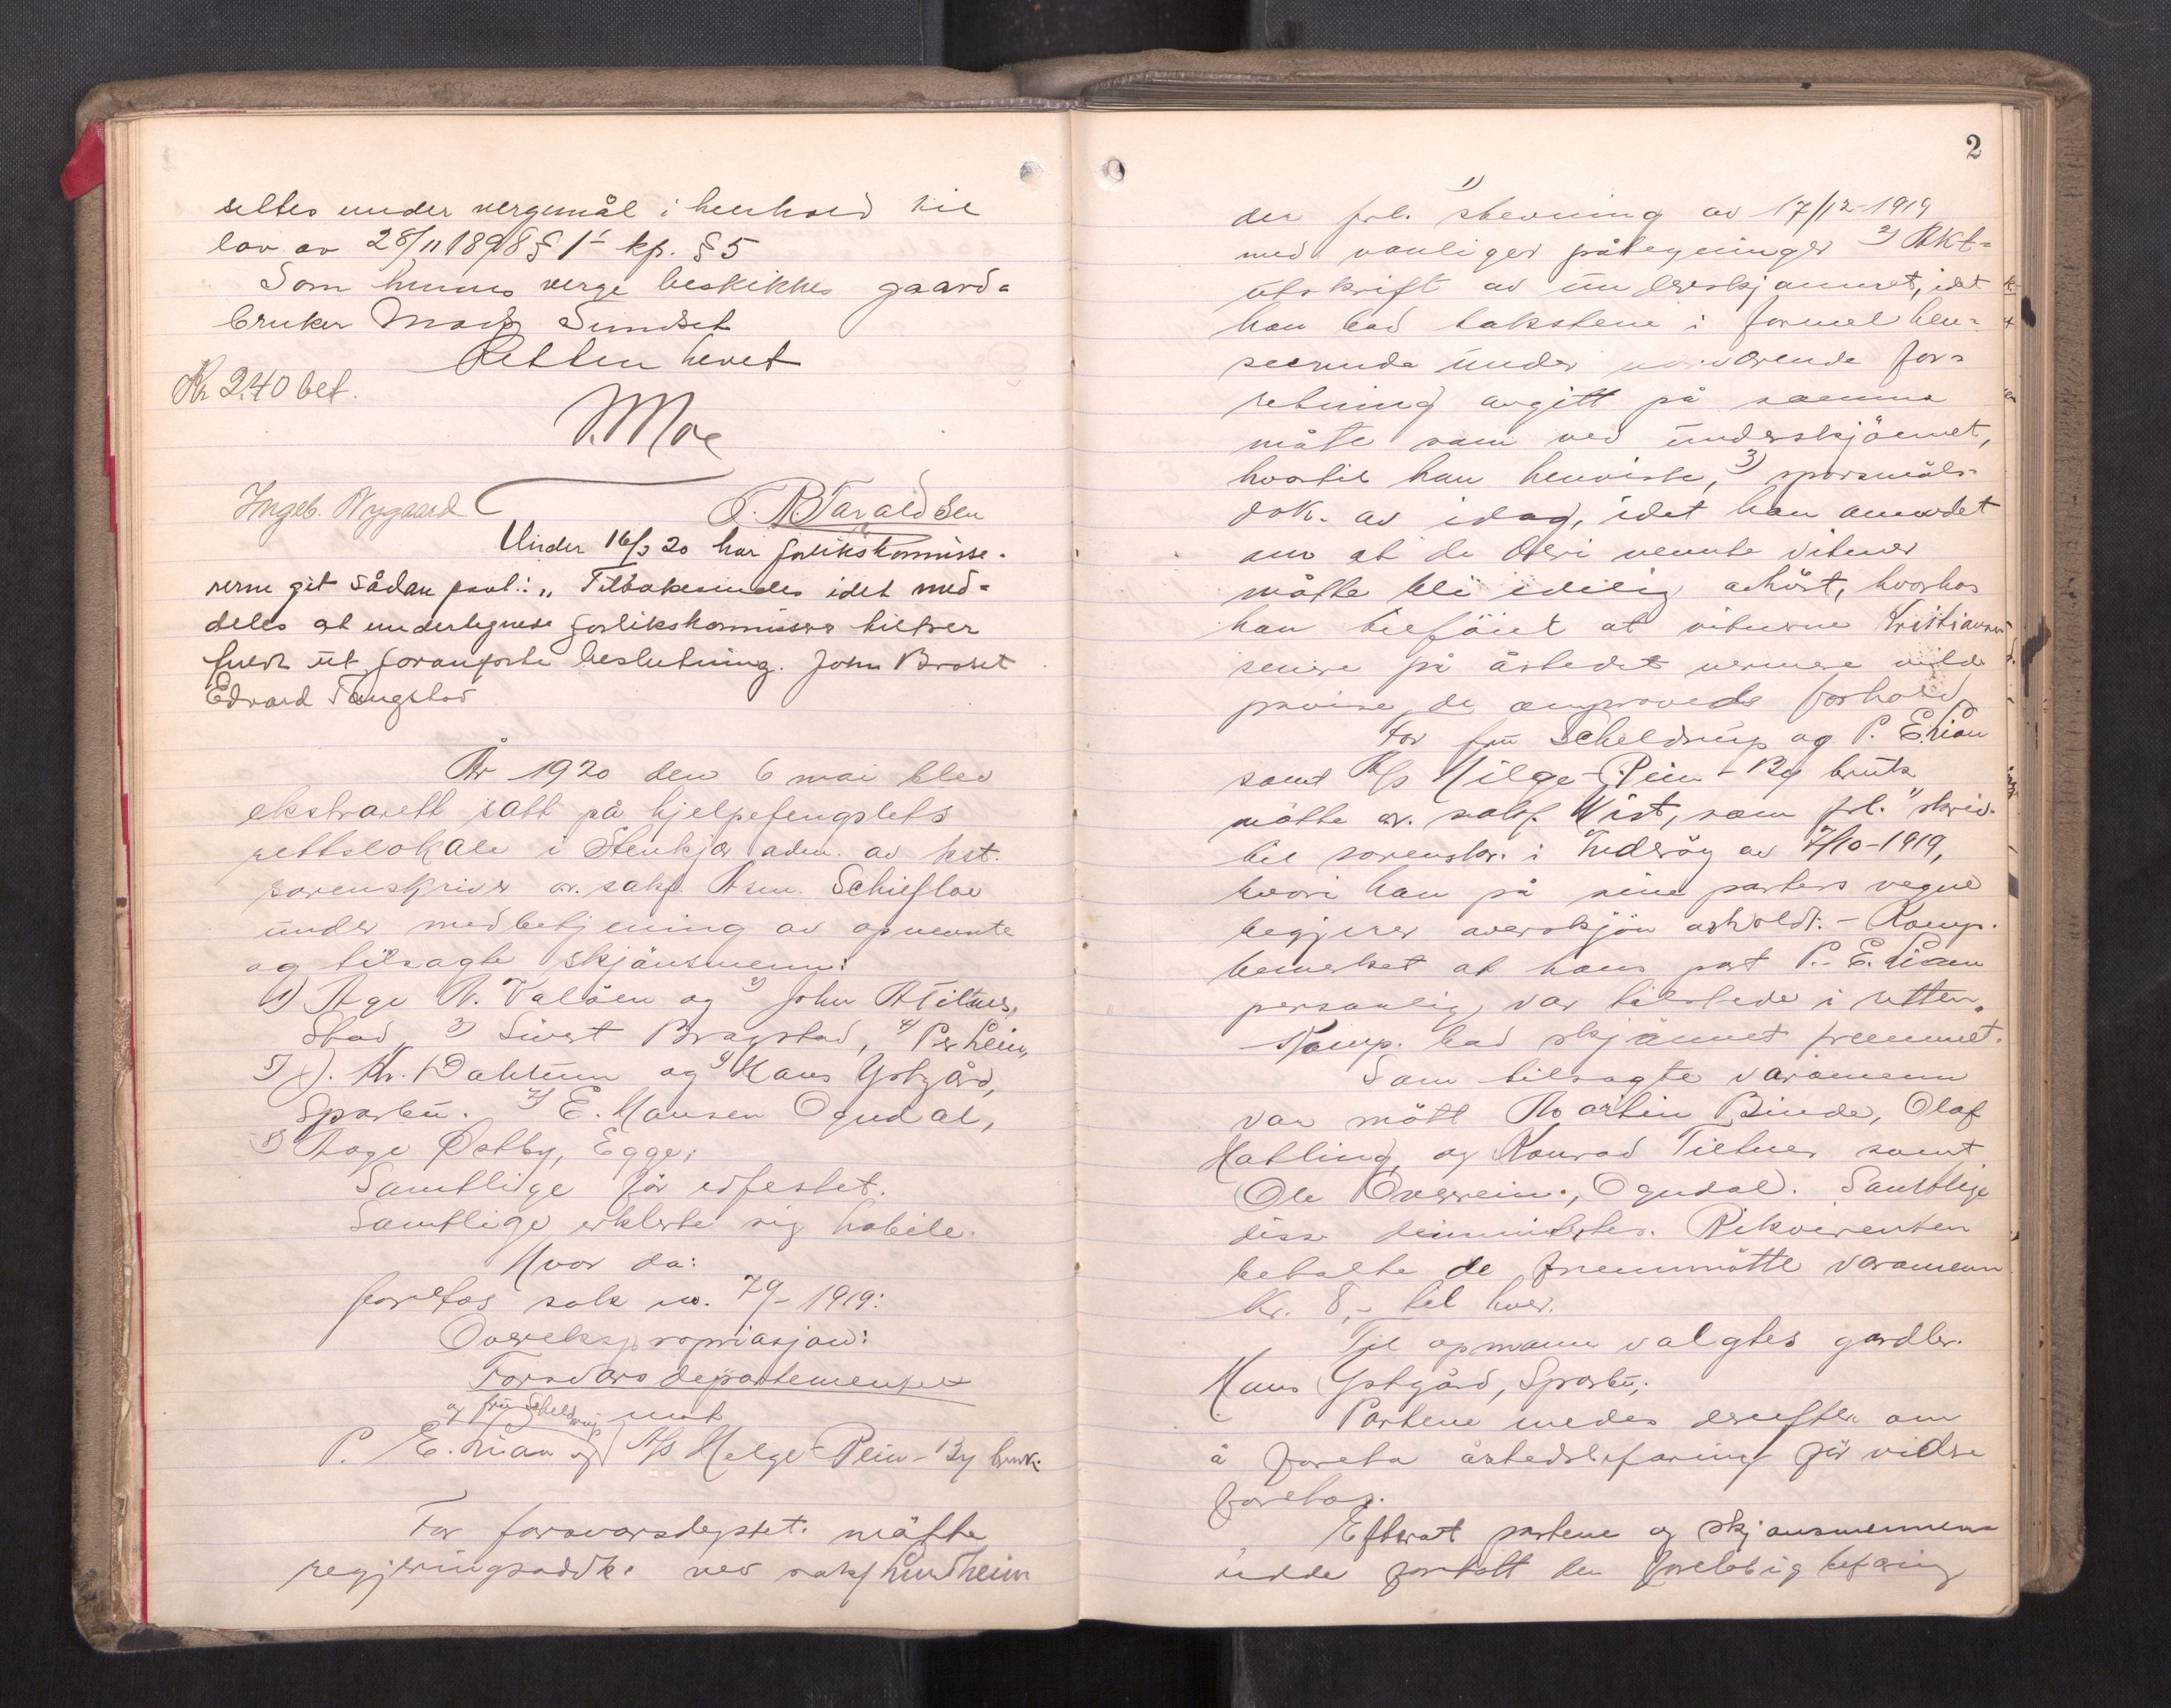 settes under vergemål i henhold til
lov av 28/11 1898 § 1 kp. § 5
Som hennes verge beskikkes gaard-
bruker Sundset
Retten hevet
Kr 2.40 bet.
Moe
Ingeb. Nygaard
Taraldsen
Under 16/3 20 har forlikskommisse-
rerne git sådan paat.: „Tilbakesendes idet med-
deles at undertegnede forlikskommissærer tiltrer
foranførte beslutning. John Brøset
Edvard Tangstad
År 1920 den 6 mai blev
ekstrarett satt på hjelpefengslets
rettslokale i Stenkjær adm. av kst.
sorenskriver or. sakf. Asm. Schiefloe
under medbetjening av opnevnte
og tilsagte skjönsmenn:
1) Age N. Valöen og 2) John A Tilnes,
Stod, 3) Sivert Bragstad, 4) Per Heim
5) J. Kr. Dahlum og 6) Hans Ystgård,
Sparbu. 7) E. Hansen Ogndal,
8) Aage Østby, Egge.
Samtlige för edfestet.
Samtlige erklerte sig habile.
Hvor da:
foretas sak no. 79-1919:
Overekspropriasjon:
Forsvarsdepartementet
og fru Scheldrup mot
P. E. Lian og A/S Helge-Rein-By bruk.
For forsvarsdeptet. mötte
regjeringsadvk. ved sakf Lundheim
2
der frl. 1) stevning av 17/12-1919
med vanlige påtegninger 2) Akt-
utskrift av underskjönnet, idet
han bad takstene i formel hen-
seende under nærværende for-
retning avgitt på samme
måte som ved underskjönnet,
hvortil han henviste, 3) spörsmåls-
dok. av idag, idet han anmodet
om at de deri nevnte vitner
måtte bli edelig avhört, hvorhos
han tilföiet at vitnerne
senere på åstedet nermere vilde
påvise de omprovede forhold.
For fru Scheldrup og P. E. Lian
samt A/S Helge-Rein-By bruk
mötte or. sakf. Wist, som frl. 1) skriv.
til sorenskr. i Inderöy av 7/10-1919,
hvori han på sine parters vegne
begjerer overskjön avholdt. - Komp.
bemerket at hans part P. E. Lian
personlig var tilstede i retten.
Komp. bad skjönnet fremmet.
Som tilsagte varamenn
var mött Martin Binde, Olaf
Hatling og Konrad Tilnes samt
Ole Överrein, Ogndal. Samtlige
disse dimmitertes. Rekvirenten
betalte de fremmötte varamenn
Kr. 8,- til hver.
Til opmann valgtes gardbr.
Hans Ystgård, Sparbu.
Partene enedes derefter om
å foreta åstedsbefaring för videre
foretas.
Efterat partene og skjönsmennene
hadde foretatt den foreløbig befaring